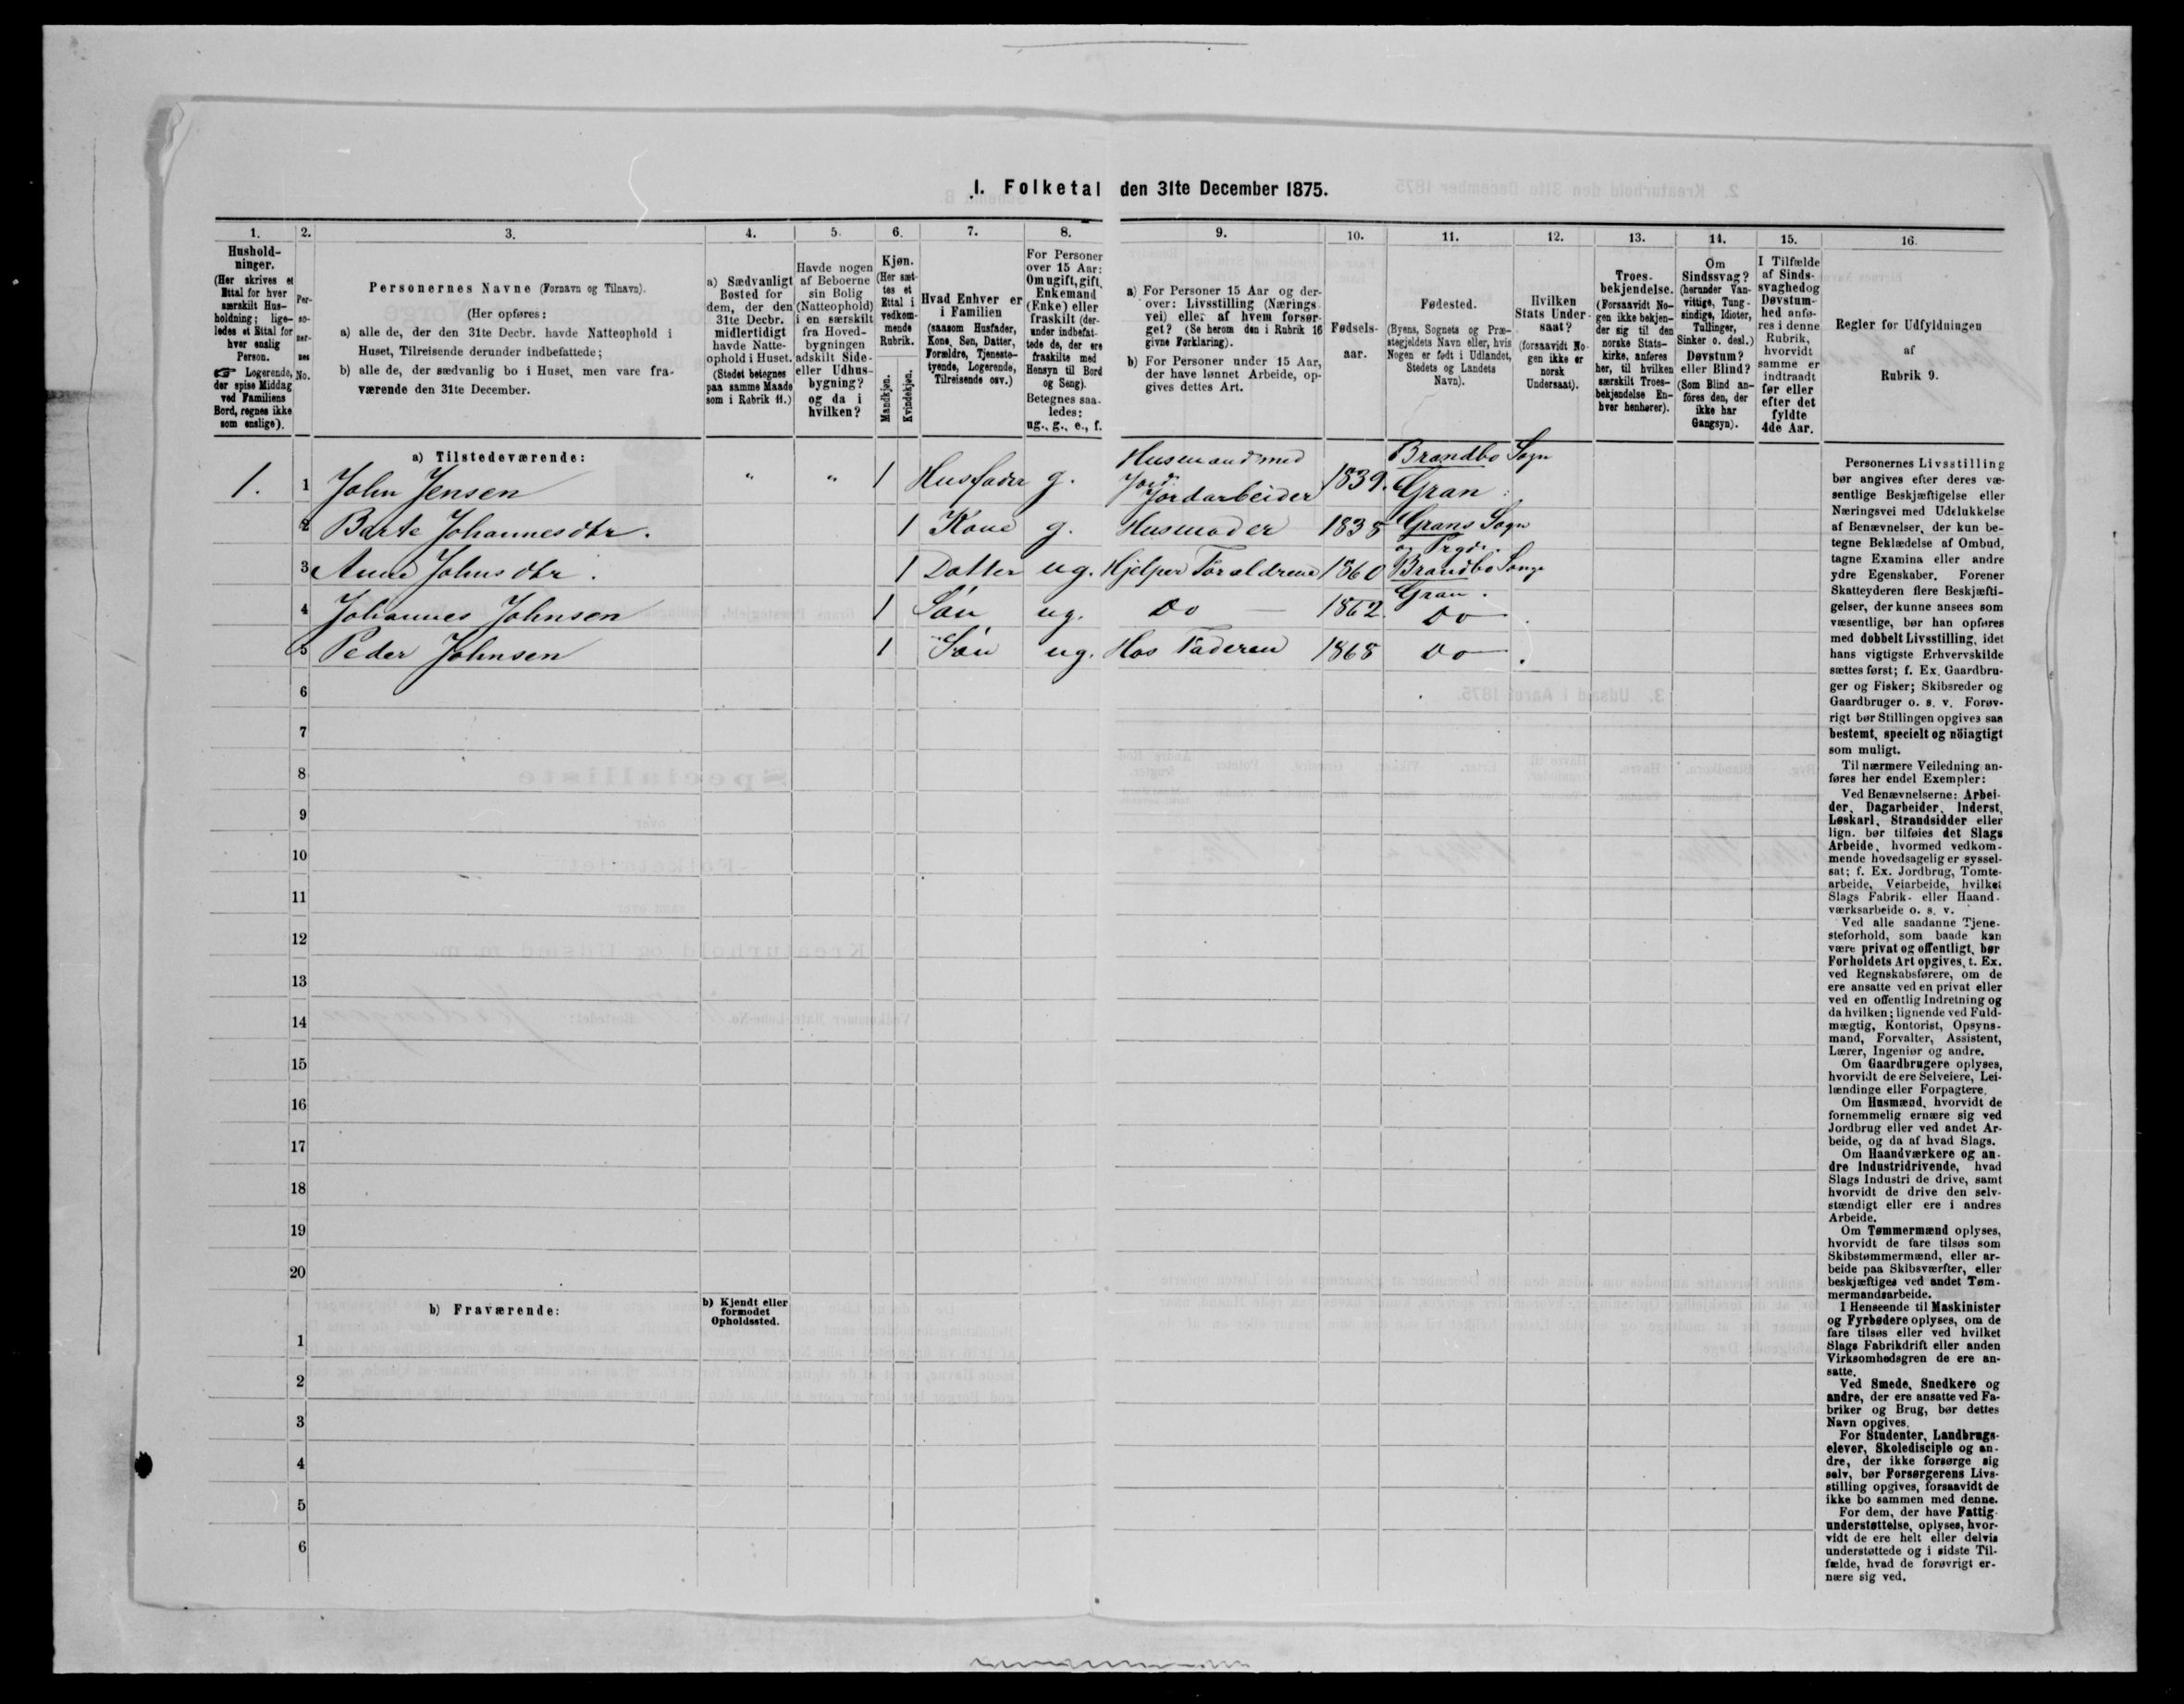 1. Folketal den 31te December 1875.
1.
2.
3.
4.
5.
6.
7.
8.
9.
10.
11.
12.
13.
14.
15.
16.
Hushold-
ninger.
(Her skrives et
Ettal for hver
særskilt Hus-
holdning; lige-
ledes et Ettal for
hver enslig
Person.
☞ Logerende,
der spise Middag
ved Familiens
Bord, regnes ikke
som enslige).
Per-
so-
ner-
nes
No.
Personernes Navne (Fornavn og Tilnavn).
(Her opføres:
a) alle de, der den 31te Decbr. havde Natteophold i
Huset, Tilreisende derunder indbefattede;
b) alle de, der sædvanlig bo i Huset, men vare fra-
værende den 31te December.
a) Sædvanligt
Bosted for
dem, der den
31te Decbr.
midlertidigt
havde Natte-
ophold i Huset.
(Stedet betegnes
paa samme Maade
som i Rubrik 11.)
Havde nogen
af Beboerne
sin Bolig
(Natteophold)
i en særskilt
fra Hoved-
bygningen
adskilt Side-
eller Udhus-
bygning?
og da i
hvilken?
Kjøn.
(Her sæt-
tes et
Ettal i
vedkom-
mende
Rubrik.
Mandkjøn.
Kvindekjøn.
Hvad Enhver er
i Familien
(saasom Husfader,
Kone, Søn, Datter,
Forældre, Tjeneste-
tyende, Logerende,
Tilreisende osv.)
For Personer
over 15 Aar:
Om ugift, gift,
Enkemand
(Enke) eller
fraskilt (der-
under indbefat-
tede de, der ere
fraskilte med
Hensyn til Bord
og Seng).
Betegnes saa-
ledes:
ug., g., e., f.
a) For Personer 15 Aar og der-
over: Livsstilling (Nærings-
vei) eller af hvem forsør-
get? (Se herom den i Rubrik 16
givne Forklaring).
b) For Personer under 15 Aar,
der have lønnet Arbeide, op-
gives dettes Art.
Fødsels-
aar.
Fødested.
(Byens, Sognets og Præ-
stegjeldets Navn eller, hvis
Nogen er født i Udlandet,
Stedets og Landets
Navn).
Hvilken
Stats Under-
saat?
(forsaavidt No-
gen ikke er
norsk
Undersaat).
Troes-
bekjendelse.
(Forsaavidt No-
gen ikke bekjen-
der sig til den
norske Stats-
kirke, anføres
her, til hvilken
særskilt Troes-
bekjendelse En-
hver henhører).
Om
Sindssvag?
(herunder Van-
vittige, Tung-
sindige, Idioter,
Tullinger,
Sinker o. desl.)
Døvstum?
eller Blind?
(Som Blind an-
føres den, der
ikke har
Gangsyn).
I Tilfælde
af Sinds-
svaghed og
Døvstum-
hed anfø-
res i denne
Rubrik,
hvorvidt
samme er
indtraadt
før eller
efter det
fyldte
4de Aar.
Regler for Udfyldningen
af
Rubrik 9.
a) Tilstedeværende:
1. 1 John Jensen " " 1 Husfader g. Husmand med Jord. Jordarbeider 1839. Brandbo Sogn Gran
2 Barte Johannesdtr. 1 Kone g. Husmoder 1838 Grans Sogn og Prgd.
3 Anne Johnsdtr. 1 Datter ug. Hjelper Forældrene 1860 Brandbo Sogn Gran.
4 Johannes Johnsen 1 Søn ug. Do 1862. Do
5 Peder Johnsen 1 Søn ug. Hos Faderen 1868 Do
6
7
8
9
10
11
12
13
14
15
16
17
18
19
20
b) Fraværende:
b) Kjendt eller
formodet
Opholdssted.
1
2
3
4
5
6
Personernes Livsstilling
bør angives efter deres væ-
sentlige Beskjæftigelse eller
Næringsvei med Udelukkelse
af Benævnelser, der kun be-
tegne Beklædelse af Ombud,
tagne Examina eller andre
ydre Egenskaber. Forener
Skatteyderen flere Beskjæfti-
gelser, der kunne ansees som
væsentlige, bør han opføres
med dobbelt Livsstilling, idet
hans vigtigste Erhvervskilde
sættes først; f. Ex. Gaardbru-
ger og Fisker; Skibsreder og
Gaardbruger o. s. v. Forøv-
rigt bør Stillingen opgives saa
bestemt, specielt og nöiagtigt
som muligt.
Til nærmere Veiledning an-
føres her endel Exempler:
Ved Benævnelserne: Arbei-
der, Dagarbeider, Inderst,
Løskarl, Strandsidder eller
lign. bør tilføies det Slags
Arbeide, hvormed vedkom-
mende hovedsagelig er syssel-
sat; f. Ex. Jordbrug, Tomte-
arbeide, Veiarbeide, hvilket
Slags Fabrik- eller Haand-
værksarbeide o. s. v.
Ved alle saadanne Tjene-
steforhold, som baade kan
være privat og offentligt, bør
Forholdets Art opgives, t. Ex.
ved Regnskabsførere, om de
ere ansatte ved en privat eller
ved en offentlig Indretning og
da hvilken; lignende ved Fuld-
mægtig, Kontorist, Opsyns-
mand, Forvalter, Assistent,
Lærer, Ingeniør og andre.
Om Gaardbrugere oplyses,
hvorvidt de ere Selveiere, Lei-
lændinge eller Forpagtere.
Om Husmænd, hvorvidt de
fornemmelig ernære sig ved
Jordbrug eller ved andet Ar-
beide, og da af hvad Slags.
Om Haandværkere og an-
dre Industridrivende, hvad
Slags Industri de drive, samt
hvorvidt de drive den selv-
stændigt eller ere i andres
Arbeide.
Om Tømmermænd oplyses,
hvorvidt de fare tilsøs som
Skibstømmermænd, eller ar-
beide paa Skibsværfter, eller
beskjæftiges ved andet Tøm-
mermandsarbeide.
I Henseende til Maskinister
og Fyrbødere oplyses, om de
fare tilsøs eller ved hvilket
Slags Fabrikdrift eller anden
Virksomhedsgren de ere an-
satte.
Ved Smede, Snedkere og
andre, der ere ansatte ved Fa-
briker og Brug, bør dettes
Navn opgives.
For Studenter, Landbrugs-
elever, Skoledisciple og an-
dre, der ikke forsørge sig
selv, bør Forsørgerens Livs-
stilling opgives, forsaavidt de
ikke bo sammen med denne.
For dem, der have Fattig-
understøttelse, oplyses, hvor-
vidt de ere helt eller delvis
understøttede og i sidste Til-
fælde, hvad de forøvrigt er-
nære sig ved.